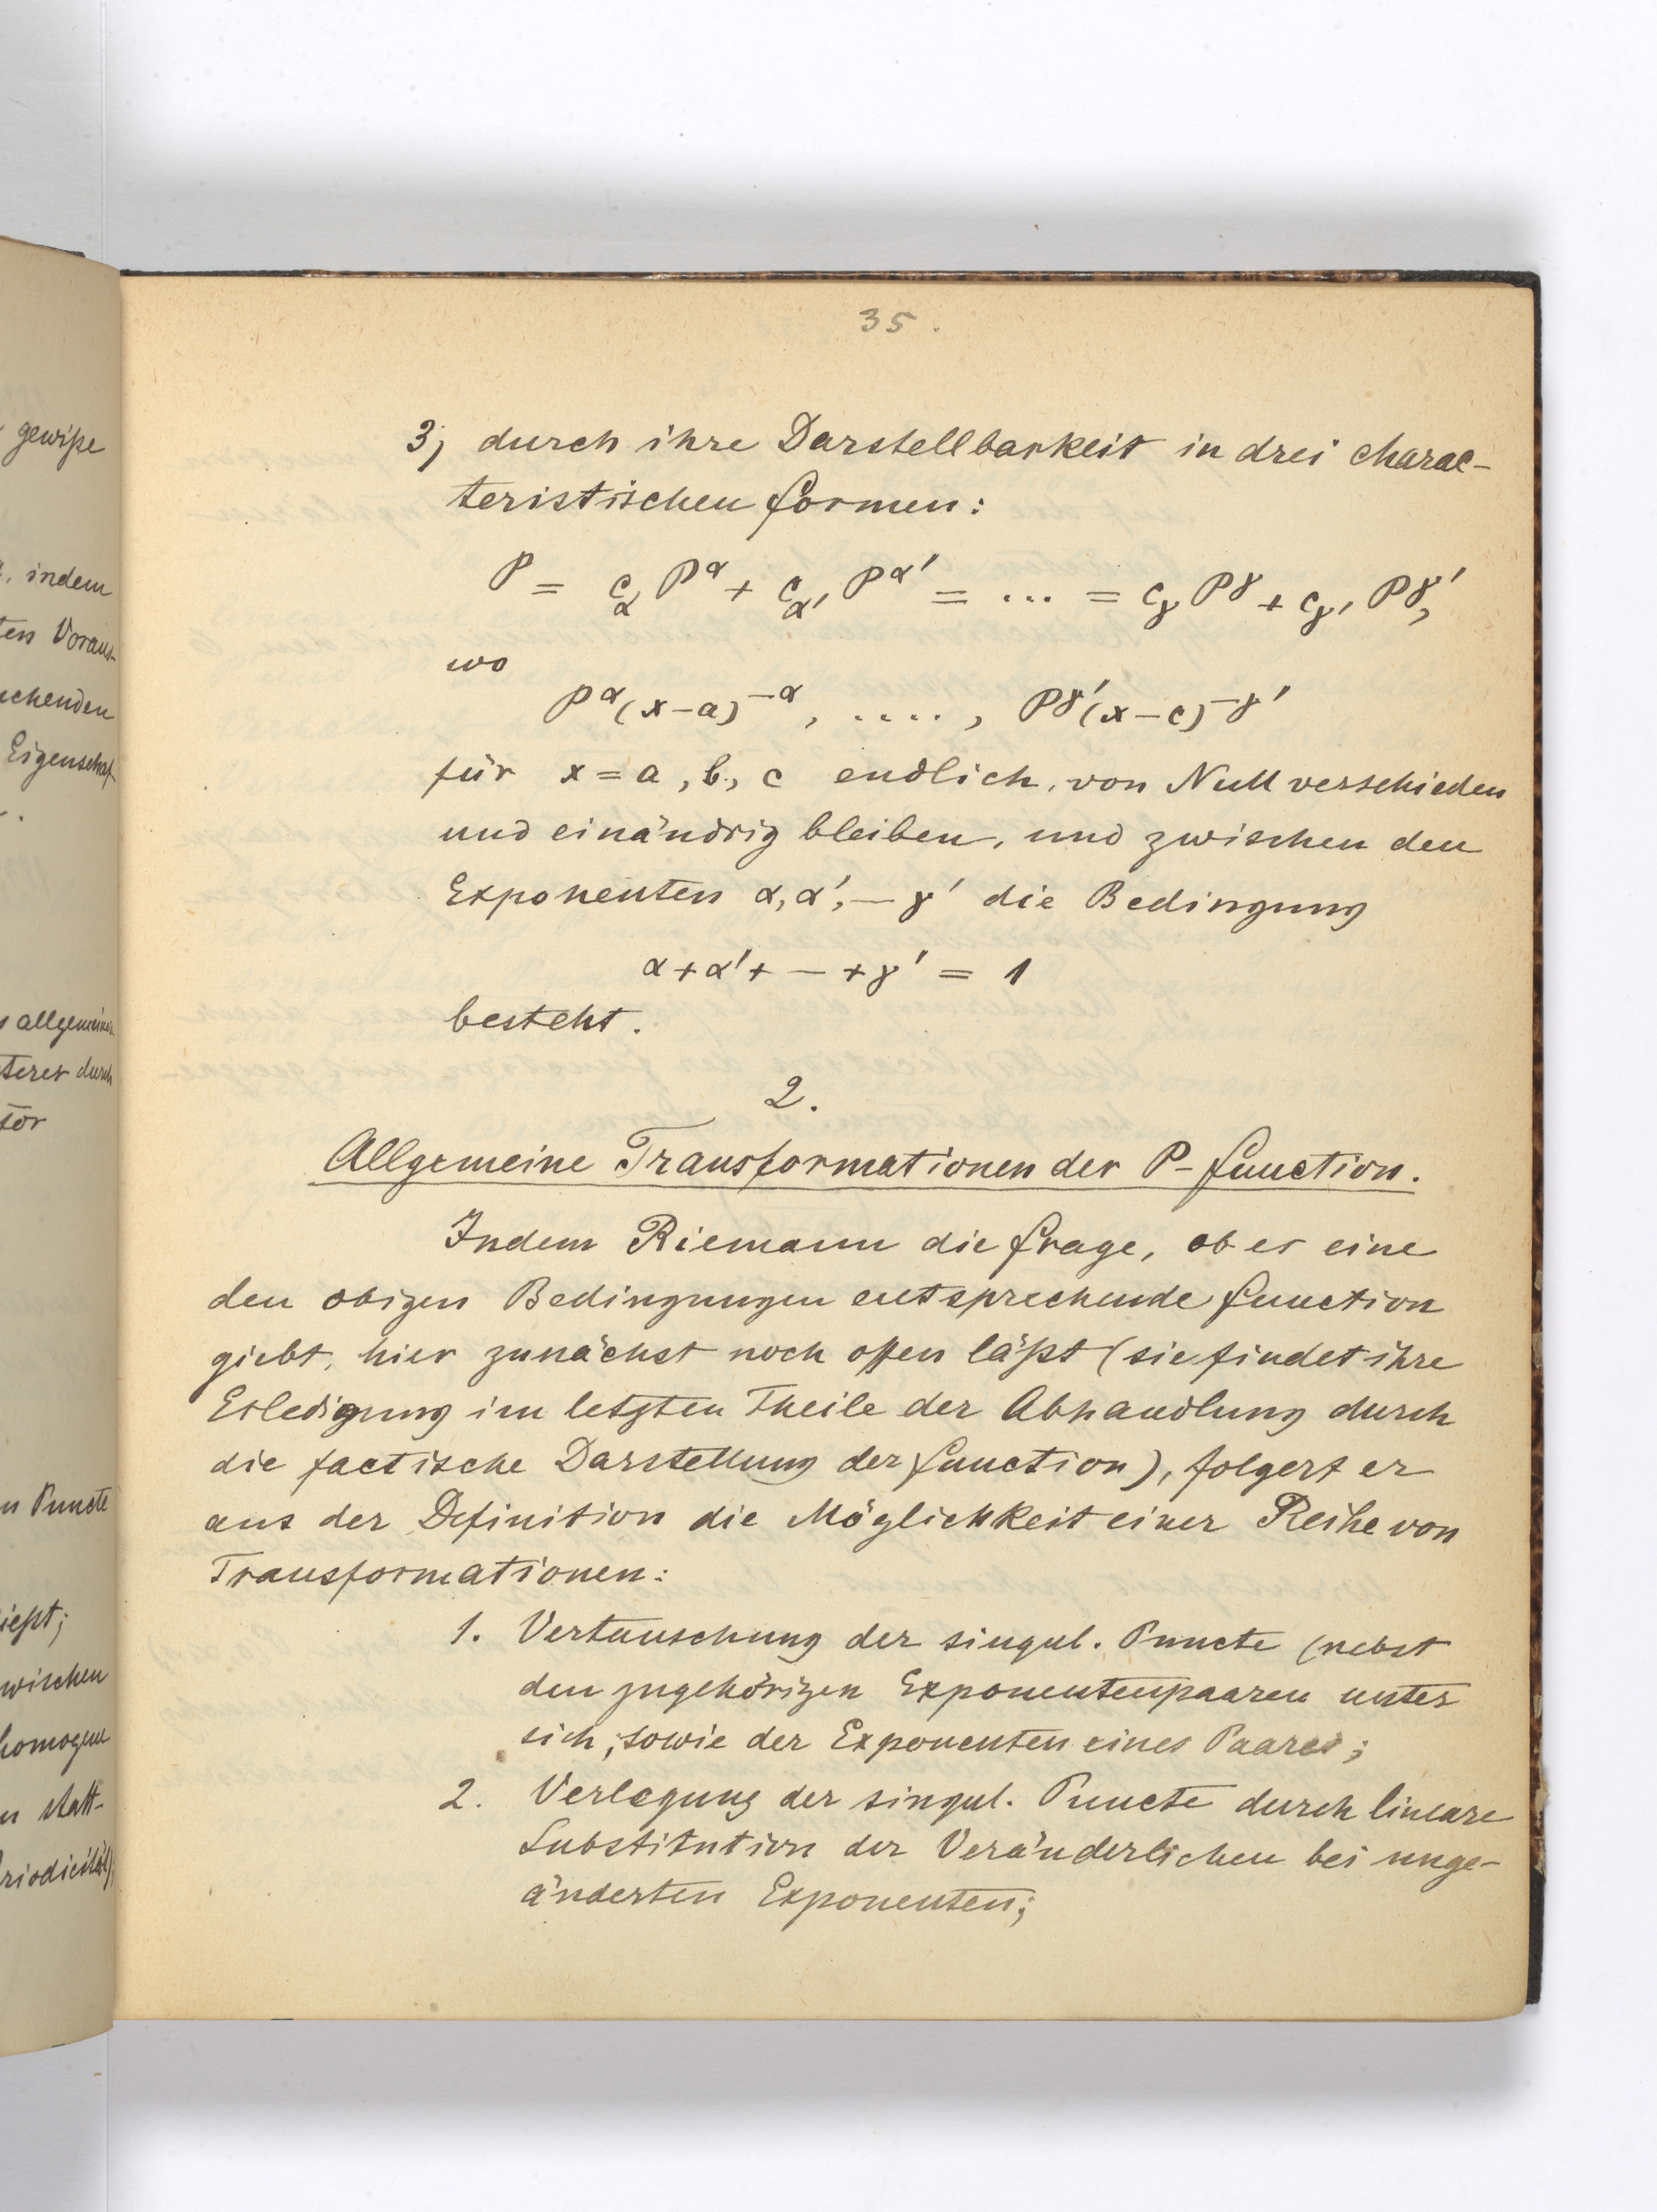 gewiße
, indem
ten Voraus-
chenden
Eigenschaf-
allgemeinen
terer durch
tor
n Puncte
ießt;
wischen
homogene
n statt-
riodicität);
35.
3) durch ihre Darstellbarkeit in drei charac-
teristischen Formen:
P = c_α P^α + c_α' P^α' = ... = c_γ P^γ + c_γ' P^γ',
wo
P^α (x-a)^-α, ....., P^γ' (x-c)^-γ'
für x = a, b, c endlich, von Null verschieden
und einändrig bleiben, und zwischen den
Exponenten α, α', — γ' die Bedingung
α + α' + — + γ' = 1
besteht.
2.
Allgemeine Transformationen der P-Function.
Indem Riemann die Frage, ob es eine
den obigen Bedingungen entsprechende Function
giebt, hier zunächst noch offen läßt (sie findet ihre
Erledigung im letzten Theile der Abhandlung durch
die factische Darstellung der Function), folgert er
aus der Definition die Möglichkeit einer Reihe von
Transformationen:
1. Vertauschung der singul. Puncte (nebst
den zugehörigen Exponentenpaaren unter
sich, sowie der Exponenten eines Paares;
2. Verlegung der singul. Puncte durch lineare
Substitution der Veränderlichen bei unge-
änderten Exponenten;